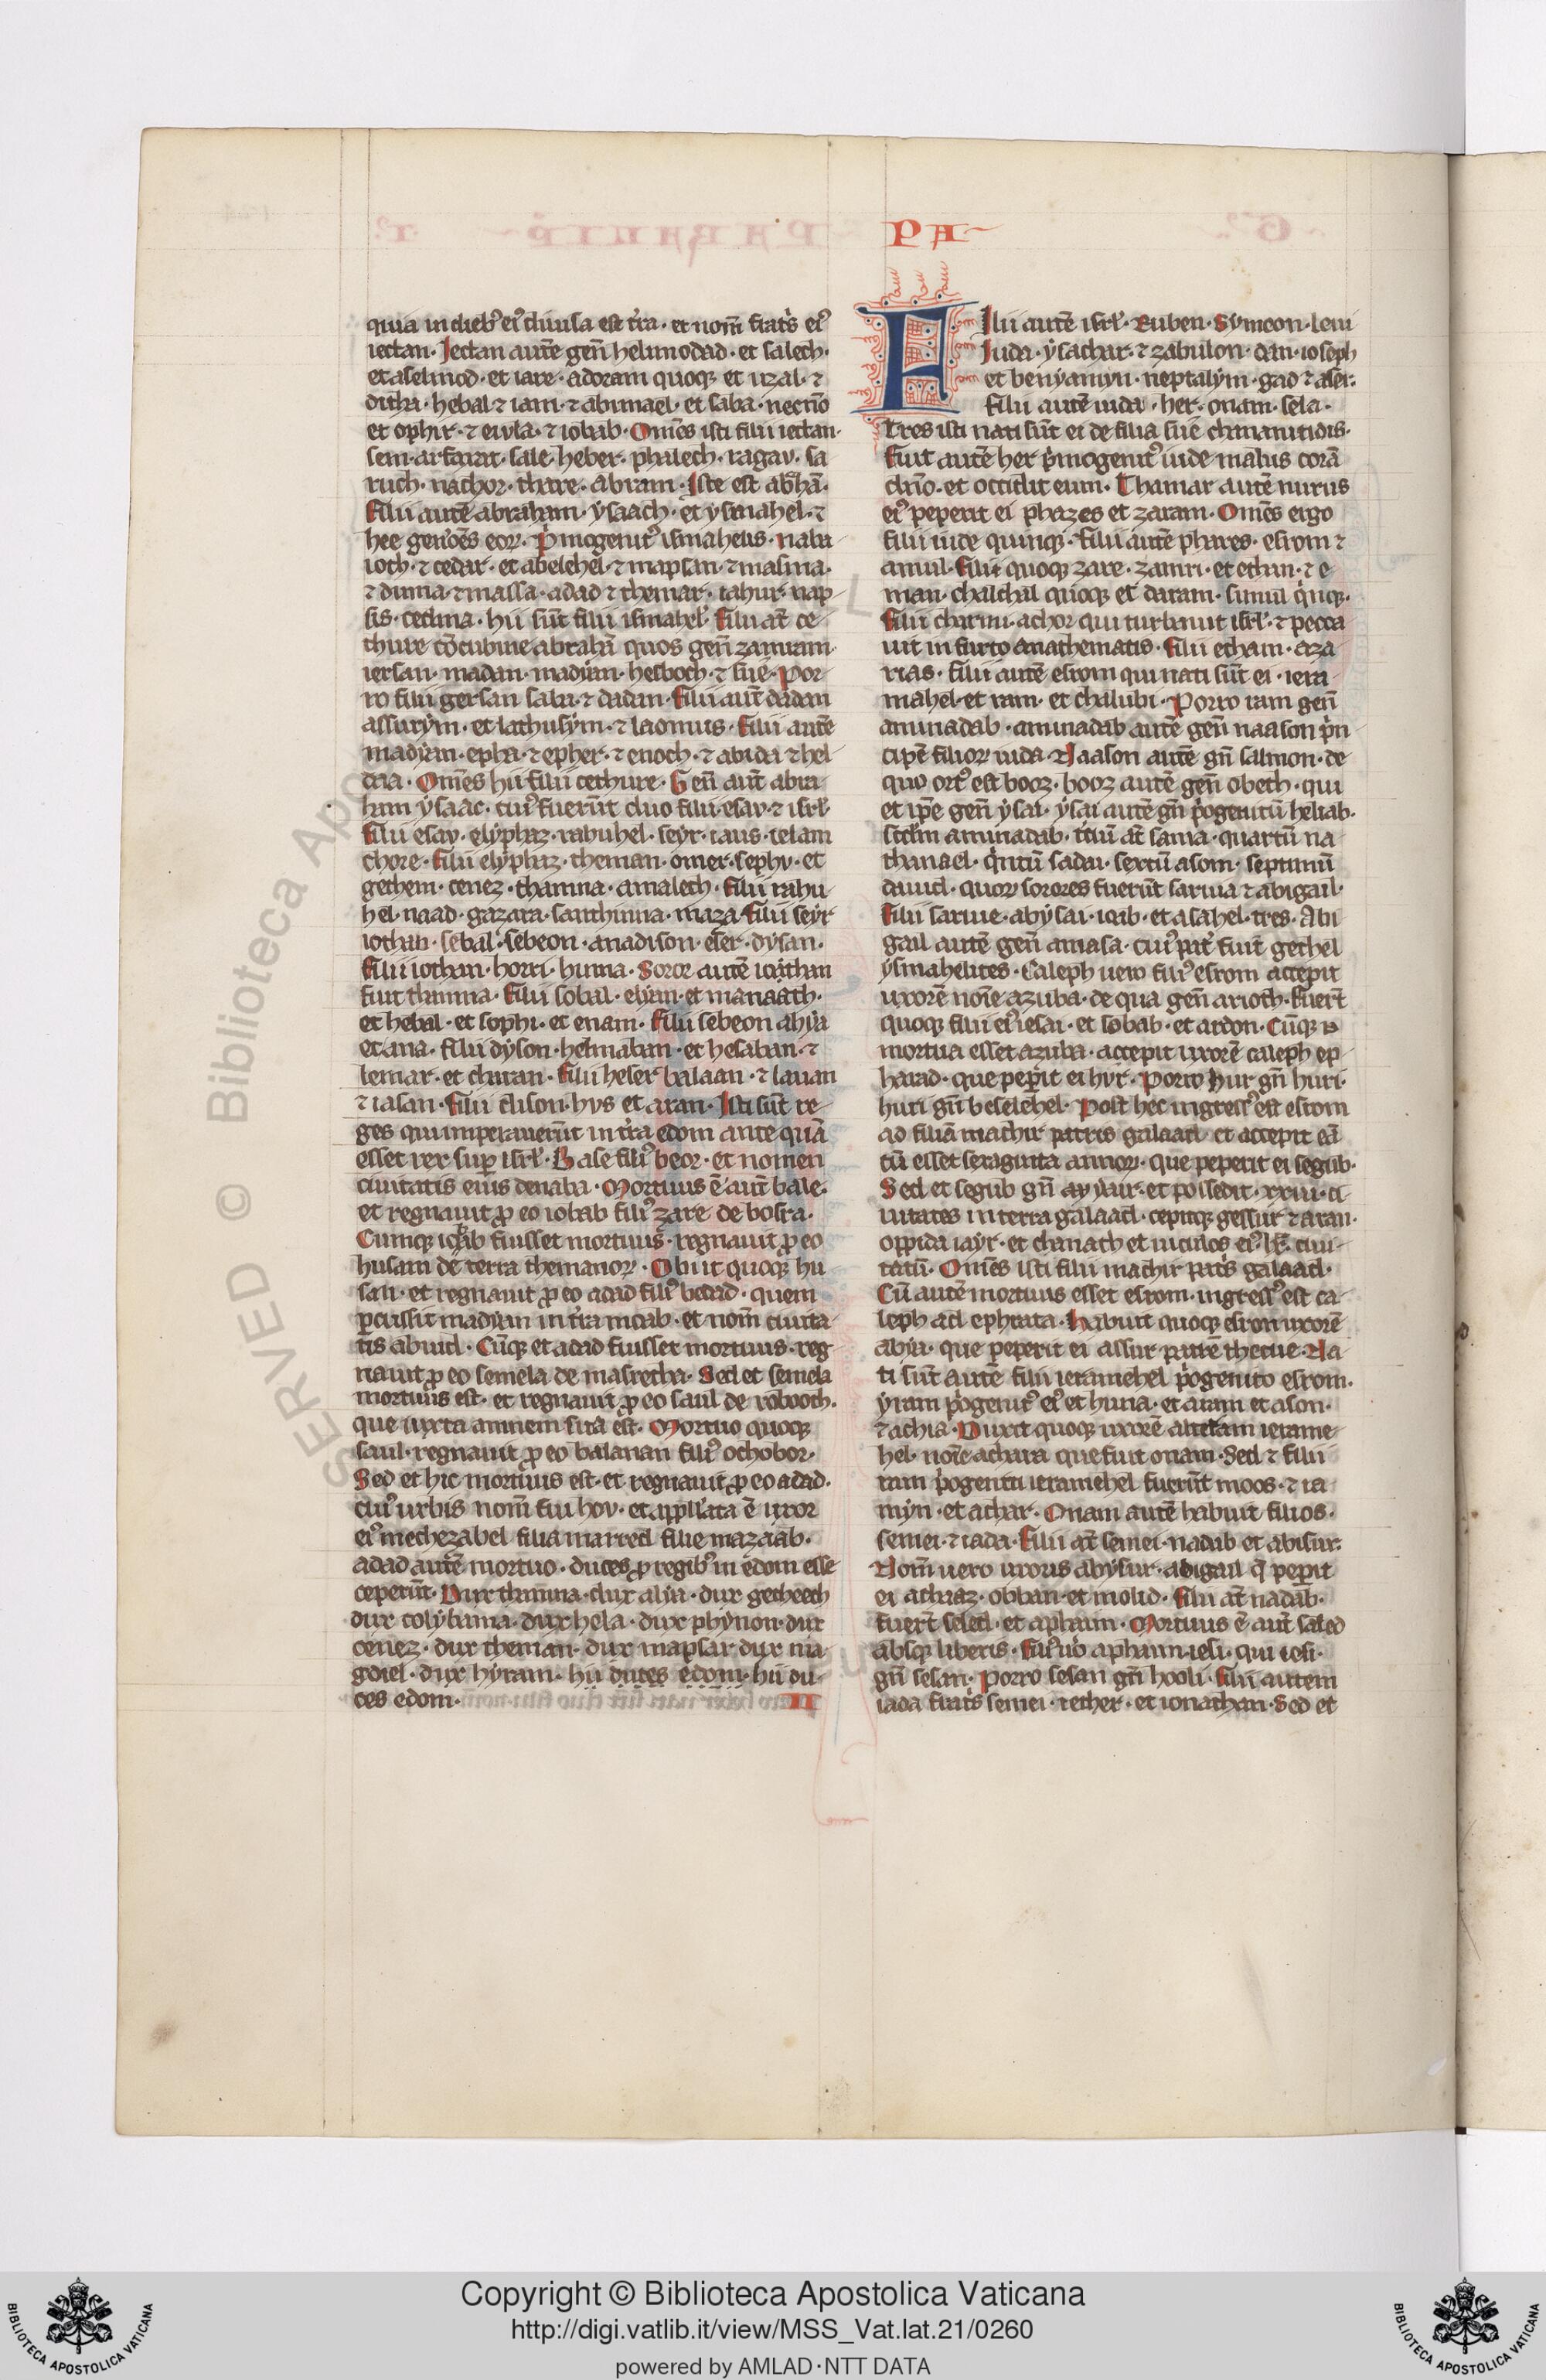 PA
quia in dieb᷒ ei᷒ diuisa est t̾ra · et nom̄ frat̾s ei᷒
iectan · Iectan autē gen̄ helmodad · et salech ·
et aselmod · et iare · adoram quoq; et uzal · ⁊
ditha · hebal ⁊ iam · ⁊ abimael · et saba · necnō
et ophir · ⁊ euyla · ⁊ iobab · Om̄es isti filii iectan ·
sem · arfaxat · sale · heber · phalech · ragau · sa
ruch · nachor · thare · abram · Iste est abhā ·
Filii autē abraham · ysaach · et ysmahel · ⁊
hee gen̄oēs eoꝝ · P̾mogenit᷒ ismahelis · naba
ioth · ⁊ cedar · et abelehel · ⁊ mapsan · ⁊ masma ·
⁊ duma · ⁊ massa · adad ⁊ themar · iahur · nap
sis · cedma · hii sūt filii ismahel · Filii at̄ ce
thure cōcubine abrahā quos gen̄ zamram ·
iersan · madan · madyan · hesboch · ⁊ sue · Por
ro filii gersan saba · ⁊ dadan · Filii aut̄ dadan
assurym · et lathusym · ⁊ laomus · Filii autē
madyan · epha · ⁊ epher · ⁊ enoch · ⁊ abida ⁊ hel
daa · Om̄es hii filii cethure · Gen̄ aut̄ abra
ham ysaac · cui᷒ fuerūt duo filii · esau · ⁊ isrl̄ ·
Filii esau · elyphaz · rahuhel · seyr · iaus · ielam
chore · Filii elyphaz · theman · omer · sephu · et
gethem · cenez · thamna · amalech · Filii rahu
hel · naad · gazara · santhinna · maza · Filii seyr
iothan · sebal · sebeon · anadison · eser · dysan ·
Filii iothan · horri · huma · Soror autē iothan
fuit thamna · Filii sobal · elyan · et manaath ·
et hebal · et sophi · et enam · Filii sebeon ahya
et ana · filii dyson · hemaban · et hesaban · ⁊
lemar · et charan · Filii heser balaan · ⁊ lauan
⁊ iasan · Filii dison · hus et aran · Isti sūt re
ges qui imperauerūt in t̾ra edom ante quā
esset rex suꝑ isrl̄ · Bale fili᷒ beor · et nomen
ciuitatis eius denaba · Mortuus ē aut̄ bale ·
et regnauit ꝓ eo iobab fili᷒ zare de bosra ·
Cumq; iobab fuisset mortuus · regnauit ꝓ eo
husam de terra themanoꝝ · Obiit quoq; hu
san · et regnauit ꝓ eo adad fili᷒ badad · quem
ꝑcussit madyan in t̾ra moab · et nom̄ ciuita
tis abuid · Cūq; et adad fuisset mortuus · reg
nauit ꝓ eo semela de masrecha · Sed et semela
mortuus est · et regnauit ꝓ eo saul de robooth ·
que iuxta amnem sita est · Mortuo quoq;
saul · regnauit ꝓ eo balanan fili᷒ ochobor ·
Sed et hic mortuus est · et regnauit ꝓ eo adad ·
cui᷒ urbis nom̄ fui hou · et appllata ē uxor
ei᷒ mechezabel filia marred filie mazaab ·
adad autē mortuo · duces ꝓ regib᷒ in edom esse
ceperūt · Dux thamna · dux alya · dux getheeth
dux colybama · dux hela · dux phynon · dux
cenez · dux theman · dux mapsar dux ma
gdiel · dux hyram · hii duces edom · hii du
ces edom · II
Filii autē isrl̄ · Ruben · Symeon · leui
Iuda · ysachar · ⁊ zabulon · dan · ioseph
et benyamyn · neptalym · gad ⁊ aser ·
filii autē iuda · her · onam · sela ·
Tres isti nati sūt ei de filia sue chananitidis ·
Fuit autē her p̾mogenit᷒ iude malus corā
dn̄o · et occidit eum · Thamar autē nurus
ei᷒ peperit ei phares et zaram · Om̄es ergo
filii iude quinq; · Filii autē phares · esrom ⁊
amul · Filii quoq; zare · zamri · et ethan · ⁊ e
man · chalchal quoq; et daram · simul q̾nq; ·
Filii charmi · achor qui turbauit isrl̄ · ⁊ pecca
uit in furto anathematis · Filii etham · aza
rias · Filii autē esrom qui nati sūt ei · iera
mahel · et ram · et chalubi · Porro ram gen̄
aminadab · aminadab autē gen̄ naason p̾n
cipē filioꝝ iuda · Naason autē gn̄ salmon · de
quo ort᷒ est booz · booz autē gen̄ obeth · qui
et ip̄e gen̄ ysai · ysai autē gn̄ p̾ogenitū heliab ·
scd̄m aminadab · t̾ciū at̄ sama · quartū na
thanael · q̾ntū sadai · sextū asom · septimū
dauid · quoꝝ sorores fuerūt saruia ⁊ abigail ·
Filii saruie · abysai · ioab · et asahel · tres · Abi
gail autē gen̄ amasa · cui᷒ pat̾ fuit gethel
ysmahelites · Caleph uero fili᷒ esrom accepit
uxorē noīe azuba · de qua gen̄ arioth · Fuer̄t
quoq; filii ei᷒ iesai · et sobab · et ardon · Cūq;
mortua esset azuba · accepit uxorē caleph ep
hatad · que peꝑit ei hyr · Porro hur gn̄ huri ·
huri gn̄ beselehel · Post hec ingress᷒ est esrom
ad filiā machir patris galaad · et accepit eā
cū esset sexaginta annoꝝ · que peperit ei segub ·
Sed et segub gn̄ yair · et possedit · xxiii · ci
uitates in terra galaad · cepitq; gessur ⁊ aran ·
oppida iayr · et chanath et uiculos ei᷒ · lx̄ · ciui
tatū · Om̄es isti filii machir pat̾s galaad ·
Cū autē mortuus esset esrom · ingress᷒ est ca
leph ad ephrata · Habuit quoq; esron uxorē
abya · que peperit ei assur patrē thecue · Na
ti sūt autē filii ieramehel p̾ogenito esrom ·
yram p̾ogenit᷒ ei᷒ et huna · et aram et ason ·
⁊ achia · Duxit quoq; uxorē alteram ierame
hel · noīe achara que fuit onam · Sed ⁊ filii
ram p̾ogeniti ieramehel fuerūt moos · ⁊ ia
myn · et achar · Onam autē habuit filios ·
semei · ⁊ iada · Filii at̄ semei · nadab et abisur ·
Nom̄ uero uxoris abysur · abigail q̄ peꝑit
ei achaz · obban · et molid · Filii at̄ nadab ·
fuer̄t seled · et aphaim · Mortuus ē aut̄ saled
absq; liberis · Fili᷒ uo̾ aphaim · iesi · qui iesi ·
gn̄ sesan · Porro sesan gn̄ hooli · Filii autem
iada frat̾s semei · iether · et ionathan · Sed et
Copyright © Biblioteca Apostolica Vaticana
http://digi.vatlib.it/view/MSS_Vat.lat.21/0260
powered by AMLAD·NTT DATA
BIBLIOTECA APOSTOLICA VATICANA
BIBLIOTECA APOSTOLICA VATICANA